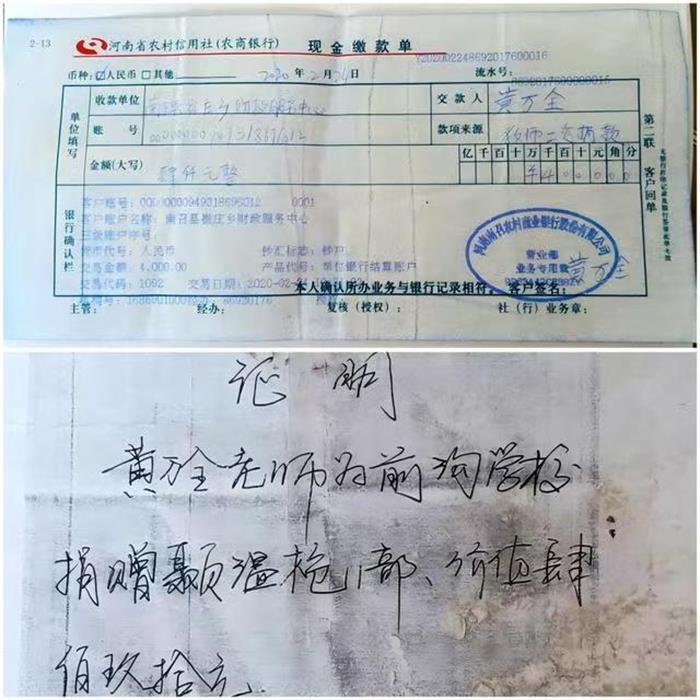 2-13 河南省农村信用社(农商银行) 现金缴款单
Y20200224869201760001​6
币种: ☑人民币 □其他 2020年2月24日 流水号:
单位填写
收款单位
交款人 黄万全
账号
款项来源 二次捐款
金额(大写) 肆仟元整
亿千百十万千百十元角分
¥400000
第二联 客户回单
银行确认栏
客户账号: 0000000949318696012 0001
客户账户名称: 南召县崔庄乡财政服务中心
三级账户序号:
货币代号: 人民币 钞汇标志: 钞户
交易金额: 4,000.00 产品代号: 单位银行结算账户
交易代码: 1092 交易日期: 2020-02-24
河南南召农村商业银行股份有限公司
营业部
业务专用章
本人确认所办业务与银行记录相符。 客户签名: 黄万全
主管: 经办: 复核(授权): 社(行)业务章:
证明
黄万全老师为前沟学校
捐赠颢温枪1部、价值肆
佰玖拾元